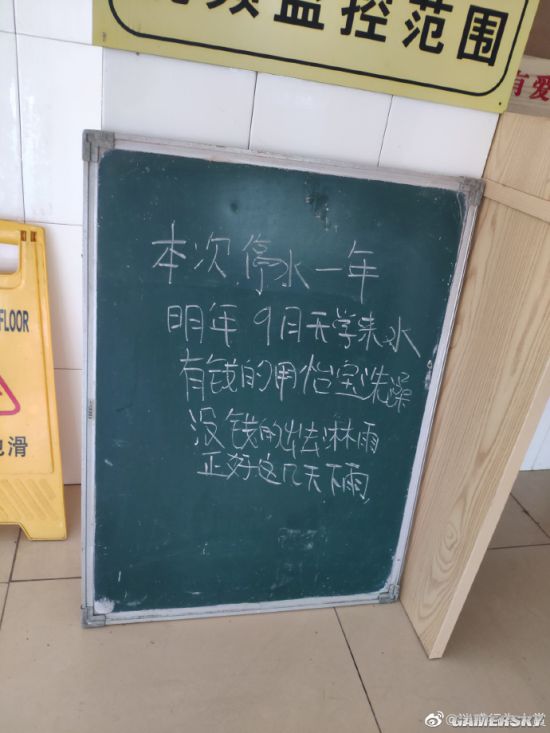 视频监控范围
有爱
本次停水一年
明年 9月开学来水
有钱的用怡宝洗澡
没钱的出去淋雨
正好这几天下雨
FLOOR
滑
GAMERSKY